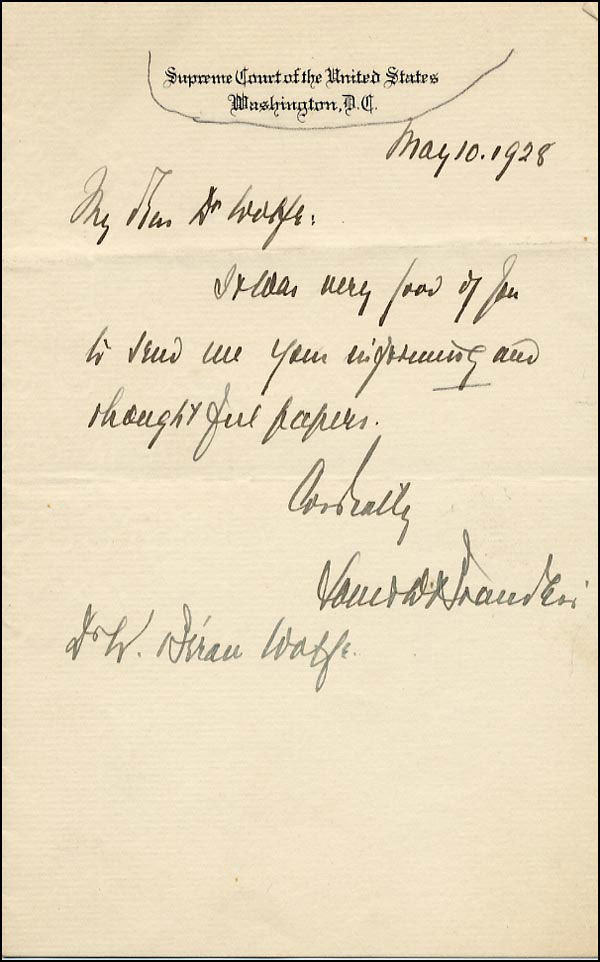 Supreme Court of the United States
Washington, D.C.
May 10. 1928
My dear Dr Wolfe:
It was very good of you
to send me your informing and
thoughtful papers.
Cordially
Louis D. Brandeis
Dr W. Béran Wolfe.